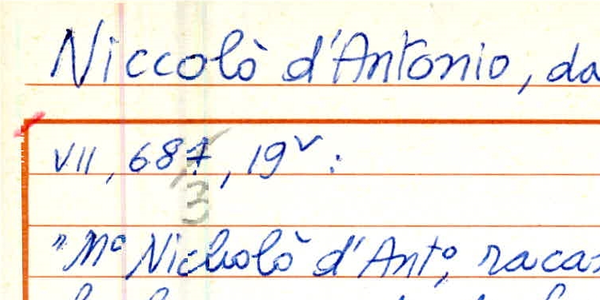 Niccolò d'Antonio, da
VII, 687, 19v:
"Mo Nicholò d'Anto, racas